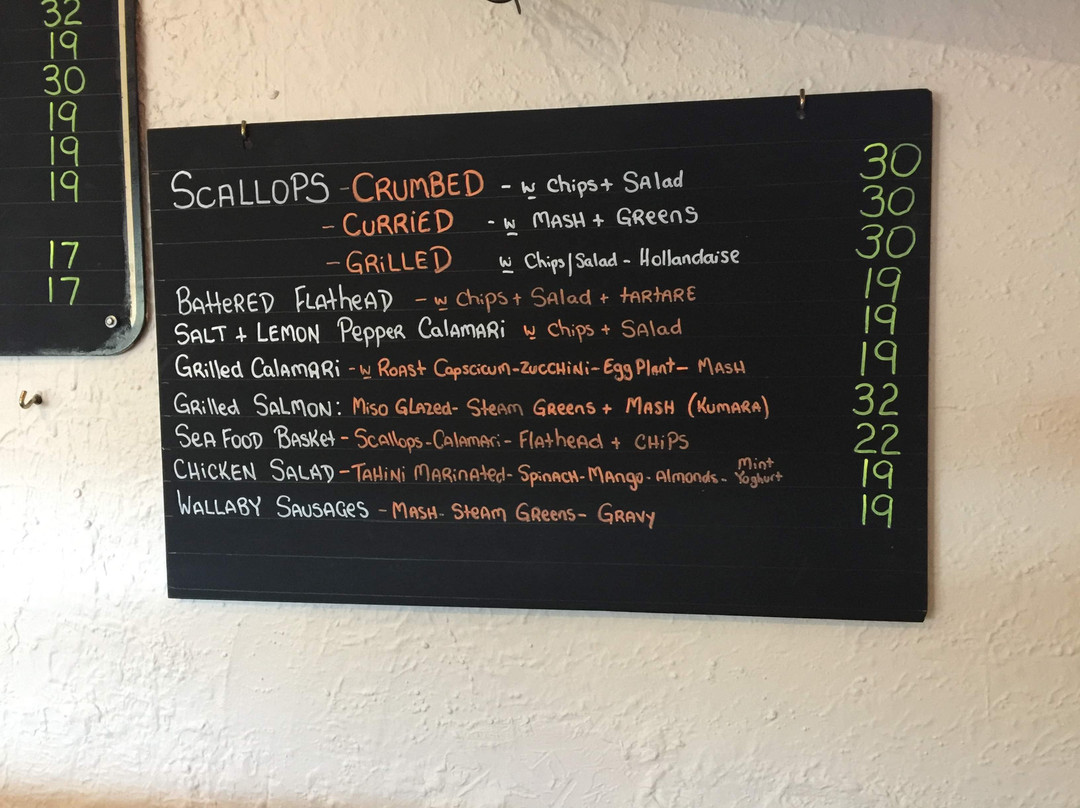 32
19
30
19
19
19
17
17
SCALLOPS - CRUMBED - w Chips + SALad 30
- CURRIED - w MASH + GREENS 30
- GRILLED w Chips/Salad - Hollandaise 30
BAttERED FLAtheAD - w Chips + SALad + tARtARE 19
SALT + LEMON Pepper CalAMARi w Chips + SALad 19
GRilled CalAMARi - w ROAST Capscicum - ZUCCHiNi - Egg Plant - MASH 19
GRilled SALMON: Miso GLAZed - Steam GReens + MASH (KUMARA) 32
SeA FOOD BASKet - SCAllops - CalAMAri - FlAtheAd + CHiPS 22
CHiCKEN SALAD - TAHiNi MARiNAted - SpiNACH - MANgo - Almonds - Mint Yoghurt 19
WALLABY SAUSAGeS - MASH - Steam GReens - GRAVy 19